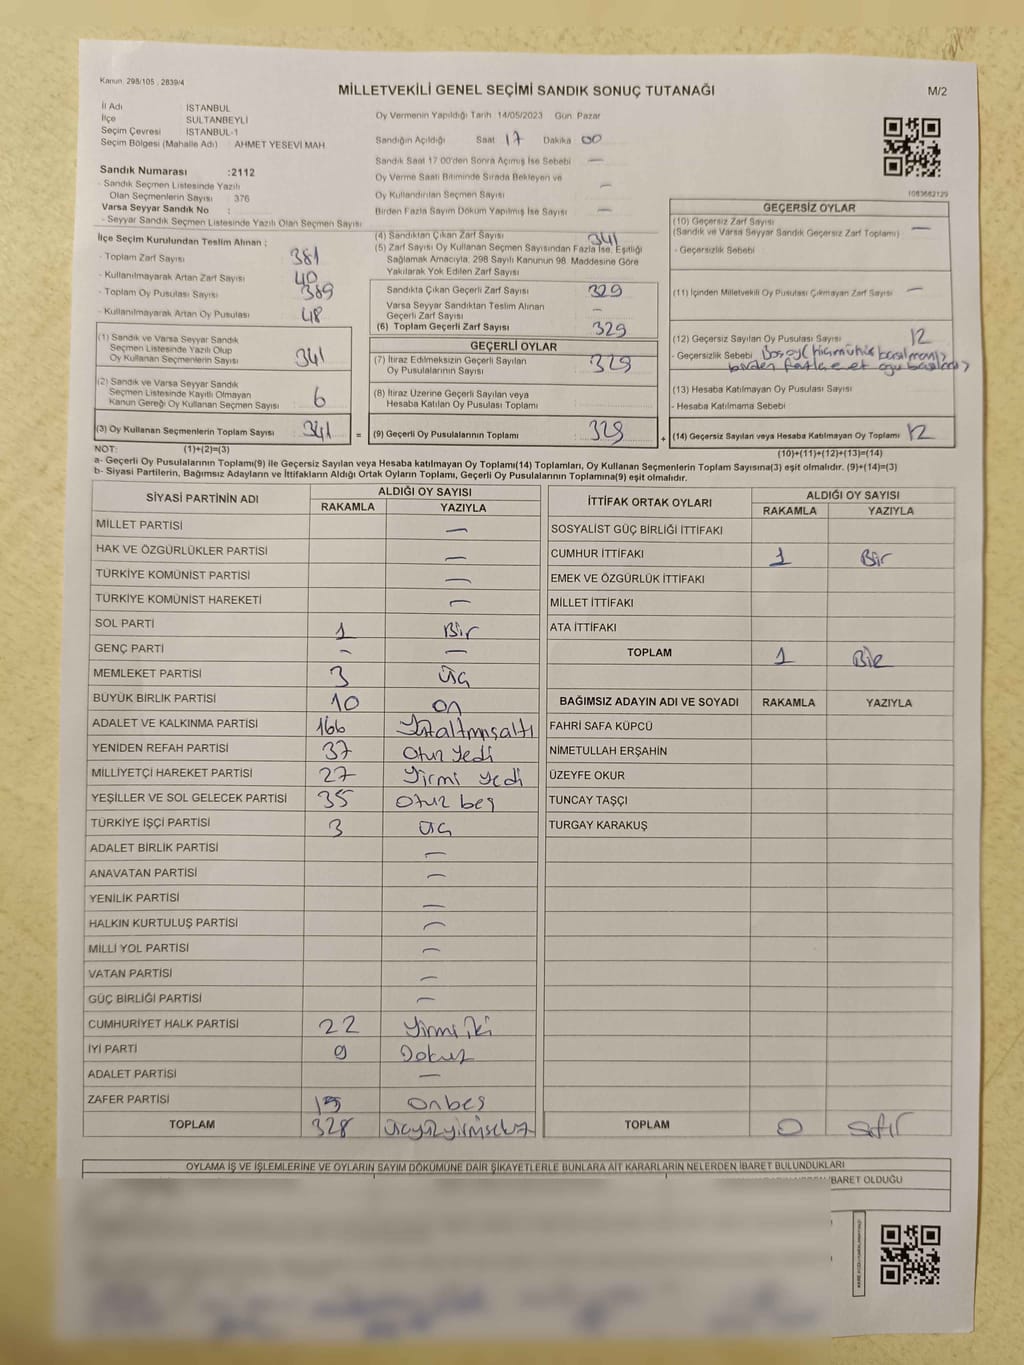 Kanun: 298/105 , 2839/4
MİLLETVEKİLİ GENEL SEÇİMİ SANDIK SONUÇ TUTANAĞI
M/2
İl Adı İSTANBUL
İlçe SULTANBEYLİ
Seçim Çevresi İSTANBUL-1
Seçim Bölgesi (Mahalle Adı) AHMET YESEVİ MAH
Oy Vermenin Yapıldığı Tarih 14/05/2023 Gün Pazar
Sandığın Açıldığı Saat 17 Dakika 00
Sandık Saat 17 00'den Sonra Açımış İse Sebebi —
Oy Verme Saati Bitiminde Sırada Bekleyen ve
Oy Kullandırılan Seçmen Sayısı —
Birden Fazla Sayım Döküm Yapılmış İse Sayısı —
1083662129
Sandık Numarası :2112
- Sandık Seçmen Listesinde Yazılı
Olan Seçmenlerin Sayısı 376
Varsa Seyyar Sandık No :
- Seyyar Sandık Seçmen Listesinde Yazılı Olan Seçmen Sayısı
İlçe Seçim Kurulundan Teslim Alınan ;
- Toplam Zarf Sayısı 381
- Kullanılmayarak Artan Zarf Sayısı 40
- Toplam Oy Pusulası Sayısı 389
- Kullanılmayarak Artan Oy Pusulası 48
(1) Sandık ve Varsa Seyyar Sandık
Seçmen Listesinde Yazılı Olup
Oy Kullanan Seçmenlerin Sayısı 341
(2) Sandık ve Varsa Seyyar Sandık
Seçmen Listesinde Kayıtlı Olmayan
Kanun Gereği Oy Kullanan Seçmen Sayısı 6
(3) Oy Kullanan Seçmenlerin Toplam Sayısı 341
(4) Sandıktan Çıkan Zarf Sayısı 341
(5) Zarf Sayısı Oy Kullanan Seçmen Sayısından Fazla İse, Eşitliği
Sağlamak Amacıyla, 298 Sayılı Kanunun 98. Maddesine Göre
Yakılarak Yok Edilen Zarf Sayısı
Sandıkta Çıkan Geçerli Zarf Sayısı 329
Varsa Seyyar Sandıktan Teslim Alınan
Geçerli Zarf Sayısı —
(6) Toplam Geçerli Zarf Sayısı 329
GEÇERLİ OYLAR
(7) İtiraz Edilmeksizin Geçerli Sayılan
Oy Pusulalarının Sayısı 329
(8) İtiraz Üzerine Geçerli Sayılan veya
Hesaba Katılan Oy Pusulası Toplamı
= (9) Geçerli Oy Pusulalarının Toplamı : 329
GEÇERSİZ OYLAR
(10) Geçersiz Zarf Sayısı
(Sandık ve Varsa Seyyar Sandık Geçersiz Zarf Toplamı) —
- Geçersizlik Sebebi
(11) İçinden Milletvekili Oy Pusulası Çıkmayan Zarf Sayısı —
(12) Geçersiz Sayılan Oy Pusulası Sayısı 12
- Geçersizlik Sebebi
(13) Hesaba Katılmayan Oy Pusulası Sayısı
- Hesaba Katılmama Sebebi
+ (14) Geçersiz Sayılan veya Hesaba Katılmayan Oy Toplamı 12
NOT: (1)+(2)=(3)
(10)+(11)+(12)+(13)=(14)
a- Geçerli Oy Pusulalarının Toplamı(9) ile Geçersiz Sayılan veya Hesaba katılmayan Oy Toplamı(14) Toplamları, Oy Kullanan Seçmenlerin Toplam Sayısına(3) eşit olmalıdır. (9)+(14)=(3)
b- Siyasi Partilerin, Bağımsız Adayların ve İttifakların Aldığı Ortak Oyların Toplamı, Geçerli Oy Pusulalarının Toplamına(9) eşit olmalıdır.
SİYASİ PARTİNİN ADI ALDIĞI OY SAYISI
RAKAMLA YAZIYLA
MİLLET PARTİSİ —
HAK VE ÖZGÜRLÜKLER PARTİSİ —
TÜRKİYE KOMÜNİST PARTİSİ —
TÜRKİYE KOMÜNİST HAREKETİ —
SOL PARTİ 1 Bir
GENÇ PARTİ - —
MEMLEKET PARTİSİ 3 üç
BÜYÜK BİRLİK PARTİSİ 10 on
ADALET VE KALKINMA PARTİSİ 166 Yüzaltmışaltı
YENİDEN REFAH PARTİSİ 37 Otuz Yedi
MİLLİYETÇİ HAREKET PARTİSİ 27 Yirmi Yedi
YEŞİLLER VE SOL GELECEK PARTİSİ 35 Otuz beş
TÜRKİYE İŞÇİ PARTİSİ 3 üç
ADALET BİRLİK PARTİSİ —
ANAVATAN PARTİSİ —
YENİLİK PARTİSİ —
HALKIN KURTULUŞ PARTİSİ —
MİLLİ YOL PARTİSİ —
VATAN PARTİSİ —
GÜÇ BİRLİĞİ PARTİSİ —
CUMHURİYET HALK PARTİSİ 22 Yirmi İki
İYİ PARTİ 9 Dokuz
ADALET PARTİSİ —
ZAFER PARTİSİ 15 Onbeş
TOPLAM 328 üçyüzyirmisekiz
İTTİFAK ORTAK OYLARI ALDIĞI OY SAYISI
RAKAMLA YAZIYLA
SOSYALİST GÜÇ BİRLİĞİ İTTİFAKI
CUMHUR İTTİFAKI 1 Bir
EMEK VE ÖZGÜRLÜK İTTİFAKI
MİLLET İTTİFAKI
ATA İTTİFAKI
TOPLAM 1 Bir
BAĞIMSIZ ADAYIN ADI VE SOYADI RAKAMLA YAZIYLA
FAHRİ SAFA KÜPCÜ
NİMETULLAH ERŞAHİN
ÜZEYFE OKUR
TUNCAY TAŞÇI
TURGAY KARAKUŞ
TOPLAM 0 sıfır
OYLAMA İŞ VE İŞLEMLERİNE VE OYLARIN SAYIM DÖKÜMÜNE DAİR ŞİKAYETLERLE BUNLARA AİT KARARLARIN NELERDEN İBARET BULUNDUKLARI
İBARET OLDUĞU